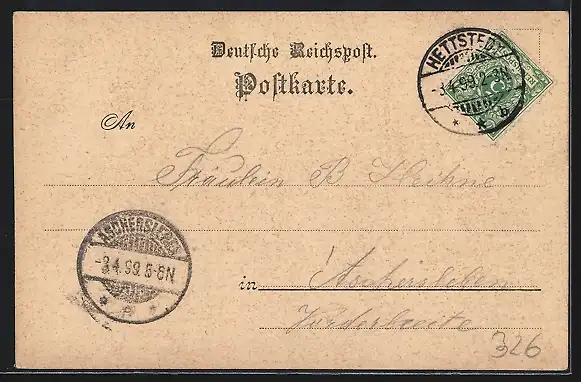 Deutsche Reichspost.
Postkarte.
HETTSTEDT
-3.4.99.2-3N
An
Fräulein B. Hechne
ASCHERSLEBEN
-3.4.99.5-6N
in Aschersleben
Vorderbreite
326